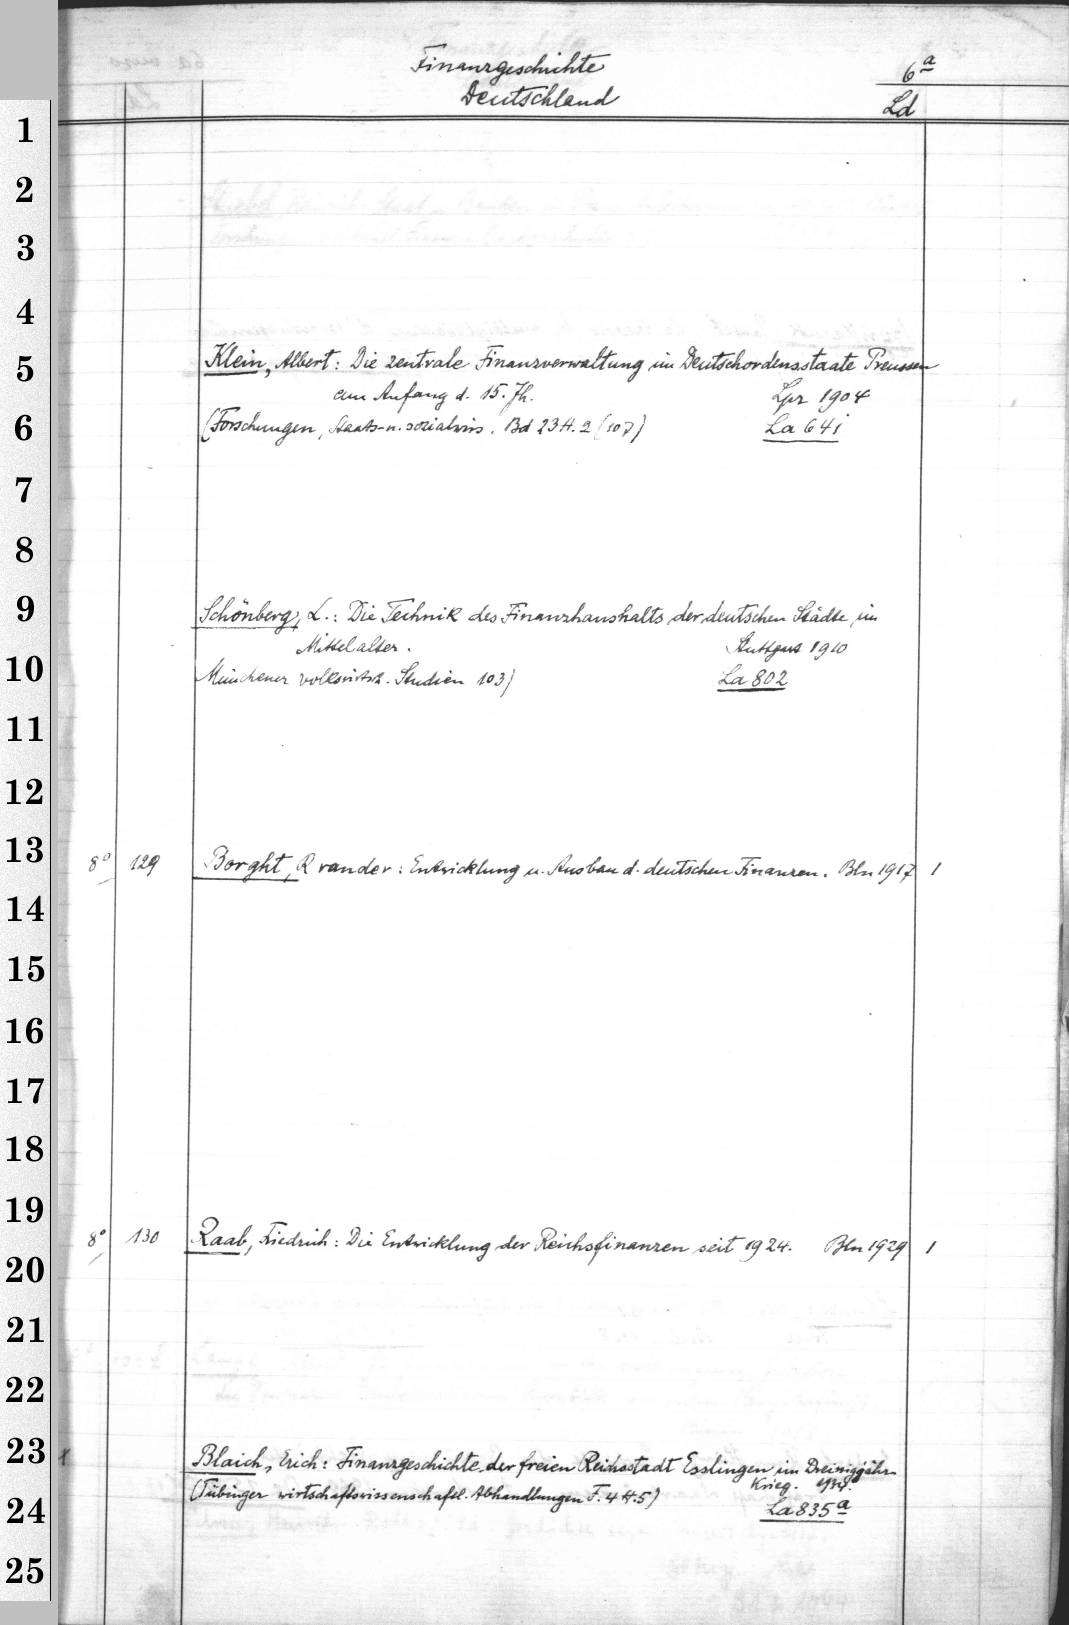 Finanzgeschichte 6a
Deutschland Ld
1
2
3
4
5 Klein, Albert: Die zentrale Finanzverwaltung im Deutschordensstaate Preussen
am Anfang d. 15. Jh. Lpz 1904
6 (Forschungen, Staats- u. sozialwis. Bd 23 H. 2 (107) La 64i
7
8
9 Schönberg, L.: Die Technik des Finanzhaushalts der deutschen Städte im
Mittelalter. Stuttgart 1910
10 Münchener volkswirtsch. Studien 103) La 802
11
12
13 8° 129 Borght, R van der: Entwicklung u. Ausbau d. deutschen Finanzen. Bln 1917 1
14
15
16
17
18
19
8° 130 Raab, Friedrich: Die Entwicklung der Reichsfinanzen seit 1924. Bln 1929 1
20
21
22
23 x Blaich, Erich: Finanzgeschichte der freien Reichsstadt Esslingen im Dreissigjähr.
Krieg. 1934.
24 (Tübinger wirtschaftswissenschaftl. Abhandlungen F. 4 H. 5) La 835a
25